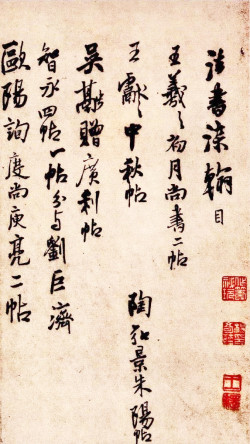 法書染翰目
王羲之初月尚書二帖
王獻之中秋帖
陶弘景朱陽帖
吳融贈廣利帖
智永四帖一帖分与劉巨濟
歐陽詢度尚庾亮二帖